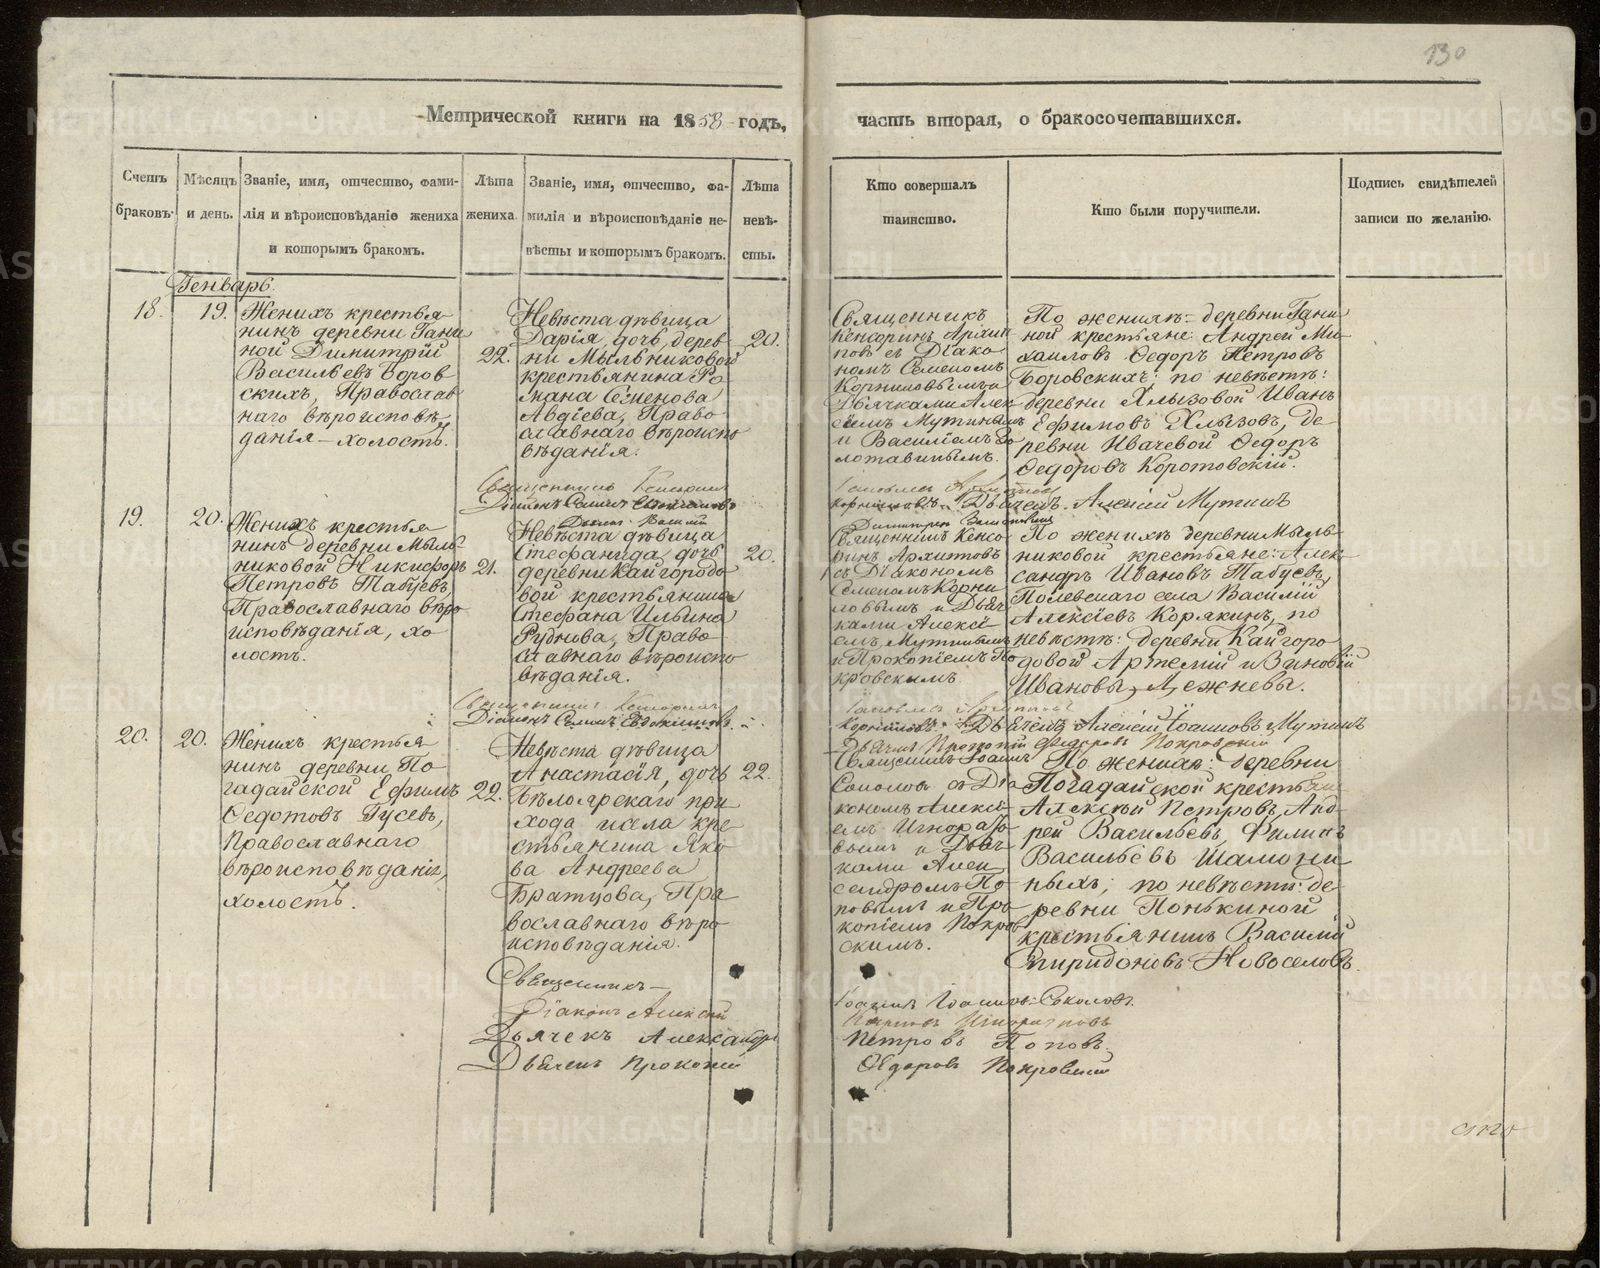 130
Метрической книги на 1858 годъ,
часть вторая, о бракосочетавшихся.
Счетъ
браковъ.
Мѣсяцъ
и день.
Званіе, имя, отчество, фами-
лія и вѣроисповѣданіе жениха
и которымъ бракомъ.
Лѣта
жениха.
Званіе, имя, отчество, фа-
милія и вѣроисповѣданіе не-
вѣсты и которымъ бракомъ.
Лѣта
невѣ-
сты.
Кто совершалъ
таинство.
Кто были поручители.
Подпись свидѣтелей
записи по желанію.
Генварь.
18.
19.
Женихъ крестья
нинъ деревни Гани
ной Димитрій
Васильевъ Боров
скихъ, Православ
наго вѣроисповѣ
данія – холостъ.
22.
Невѣста дѣвица
Дарія, дочь, дерев
ни Мыльниковой
крестьянина Ро
мана Семенова
Авдіева, Право
славнаго вѣроиспо
вѣданія.
20.
Священникъ
Кенсоринъ Архип
повъ съ Діако
номъ Семеномъ
Корниловымъ и
Дьячками Алек
сіемъ Мутинымъ
и Василіемъ
По женихѣ – деревни Гани
ной крестьяне: Андрей Ми
хаиловъ Ѳедоръ Петровъ
Боровскихъ: по невѣстѣ:
деревни Хлызовой Иванъ
Ефимовъ Хлызовъ, де
ревни Ивачевой Ѳедоръ
Ѳедоровъ Коротовскій.
Священникъ Кенсоринъ
Діаконъ Семенъ
Дьячекъ Василій
Корниловъ. Дьячекъ Алексій Мутинъ
19.
20.
Женихъ крестья
нинъ деревни Мыль
никовой Никифоръ
Петровъ Табуевъ,
Православнаго вѣро
исповѣданія, хо
лостъ.
21.
Невѣста дѣвица
Стефанида, дочь
деревни Кайгородо
вой крестьянина
Стефана Ильина
Руднова, Право
славнаго вѣроиспо
вѣданія.
20.
Священникъ Кенсо
ринъ Архиповъ
съ Діакономъ
Семеномъ Корни
ловымъ и Дьяч
ками Алексі
емъ Мутинымъ
и Прокопіемъ По
кровскимъ
По женихѣ деревни Мыль
никовой крестьяне: Алек
сандръ Ивановъ Табуевъ,
Полевскаго села Василій
Алексіевъ Корякинъ, по
невѣстѣ: деревни Кайгоро
довой Артемій и Зиновій
Ивановы Лежневы.
Священникъ Кенсоринъ
Діаконъ Семенъ Евдокимовъ
Корниловъ. Дьячекъ Алексій Іоанновъ Мутинъ
Дьячекъ Прокопій Ѳедоровъ Покровскій
20.
20.
Женихъ крестья
нинъ деревни По
гадайской Ефимъ
Ѳедотовъ Гусевъ,
Православнаго
вѣроисповѣданія,
холостъ.
22.
Невѣста дѣвица
Анастасія, дочь
Бѣлоярскаго при
хода и села кре
стьянина Яко
ва Андреева
Братцова, Пра
вославнаго вѣро
исповѣданія.
22.
Священникъ Іоаннъ
Соколовъ съ Діа
кономъ Алексі
емъ Игнорато
вымъ и Дьяч
ками Алек
сандромъ По
повымъ и Про
копіемъ Покров
скимъ.
По женихѣ: деревни
Погадайской крестьяне
Алексѣй Петровъ, Анд
рей Васильевъ, Филипъ
Васильевъ Шамони
ныхъ, по невѣстѣ: де
ревни Понькиной
крестьянинъ Василій
Спиридоновъ Новоселовъ.
Священникъ –
Іоаннъ Іоанновъ Соколовъ.
Діаконъ Алексій
Дьячекъ Александръ
Петровъ Поповъ.
Дьячекъ Прокопій
Ѳедоровъ Покровскій